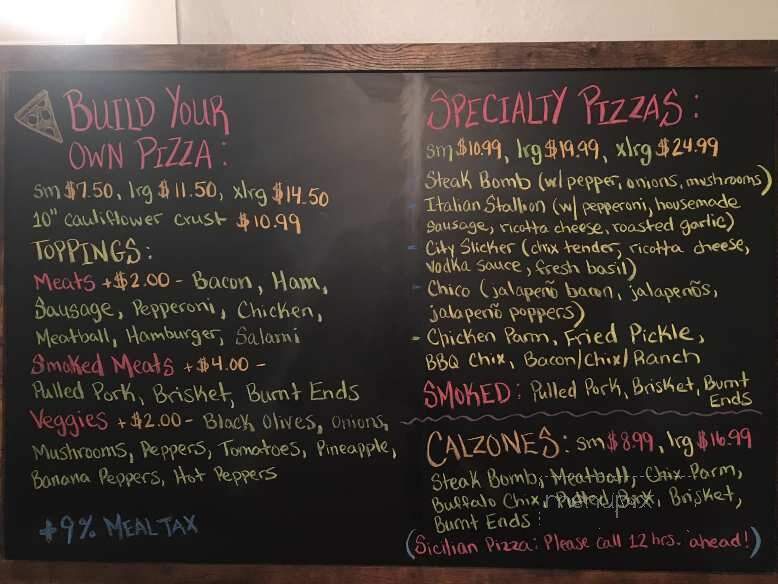 BUILD YOUR
OWN PIZZA:
sm $7.50, lrg $11.50, xlrg $14.50
10" cauliflower crust $10.99
TOPPINGS:
Meats +$2.00 - Bacon, Ham,
Sausage, Pepperoni, Chicken,
Meatball, Hamburger, Salami
Smoked Meats +$4.00 -
Pulled Pork, Brisket, Burnt Ends
Veggies +$2.00 - Black Olives, Onions,
Mushrooms, Peppers, Tomatoes, Pineapple,
Banana Peppers, Hot Peppers
+9% MEAL TAX
SPECIALTY PIZZAS:
sm $10.99, lrg $19.99, xlrg $24.99
Steak Bomb (w/ pepper, onions, mushrooms)
Italian Stallion (w/ pepperoni, housemade
sausage, ricotta cheese, roasted garlic)
City Slicker (chix tender, ricotta cheese,
vodka sauce, fresh basil)
Chico (jalapeño bacon, jalapeños,
jalapeño poppers)
Chicken Parm, Fried Pickle,
BBQ Chix, Bacon/Chix/Ranch
SMOKED: Pulled Pork, Brisket, Burnt
Ends
CALZONES: sm $8.99, lrg $16.99
Steak Bomb, Meatball, Chix Parm,
Buffalo Chix, Pulled Pork, Brisket,
Burnt Ends
(Sicilian Pizza: Please call 12 hrs. ahead!)
menupix